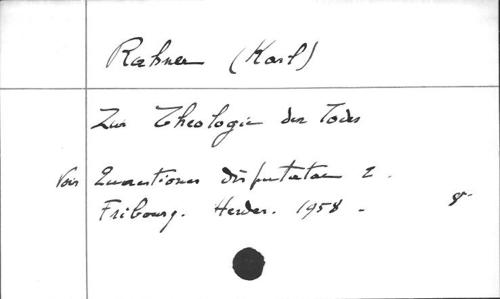 Rahner (Karl)
Zur Theologie des Todes
Voir Quaestiones disputatae 2.
Fribourg. Herder. 1958 - 8°